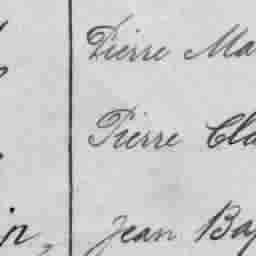 Pierre Ma
Pierre Cla
Jean Bap